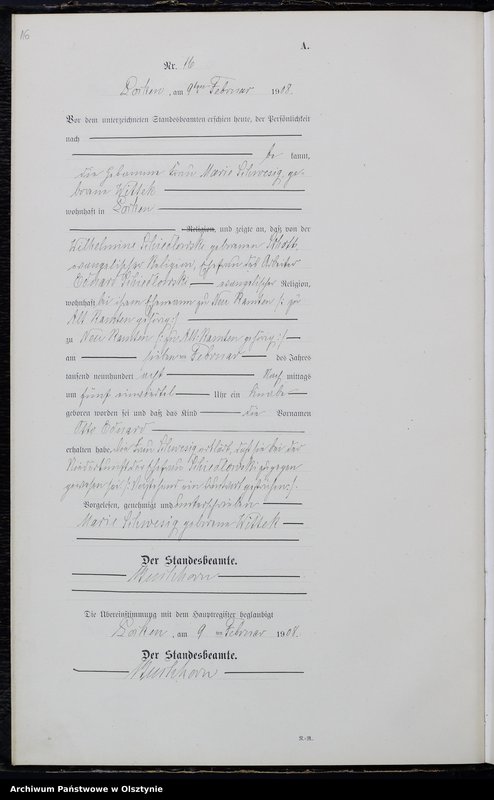 16
A.
Nr. 16
am 9ten Februar 1908.
Vor dem unterzeichneten Standesbeamten erschien heute, der Persönlichkeit
nach
be kannt,
die Hebamme Frau Marie Schwesig, ge-
borene Wittek
wohnhaft in
Religion, und zeigte an, daß von der
Wilhelmine geborenen
evangelischer Religion, Ehefrau des Arbeiter
Eduard evangelischer Religion,
wohnhaft bei ihrem Ehemann zu Neu Ramten /: zu
Alt Ramten gehörig :/
zu Neu Ramten /: zu Alt Ramten gehörig :/
am Februar des Jahres
tausend neunhundert acht Nach mittags
um fünf einviertel Uhr ein Knabe
geboren worden sei und daß das Kind die Vornamen
Otto Eduard
erhalten habe. Die Frau Schwesig erklärt, daß sie bei der
Niederkunft der Ehefrau zugegen
gewesen sei.
Vorgelesen, genehmigt und unterschrieben
Marie Schwesig geborene Wittek
Der Standesbeamte.
Die Übereinstimmung mit dem Hauptregister beglaubigt
am 9 ten Februar 1908.
Der Standesbeamte.
Archiwum Państwowe w Olsztynie